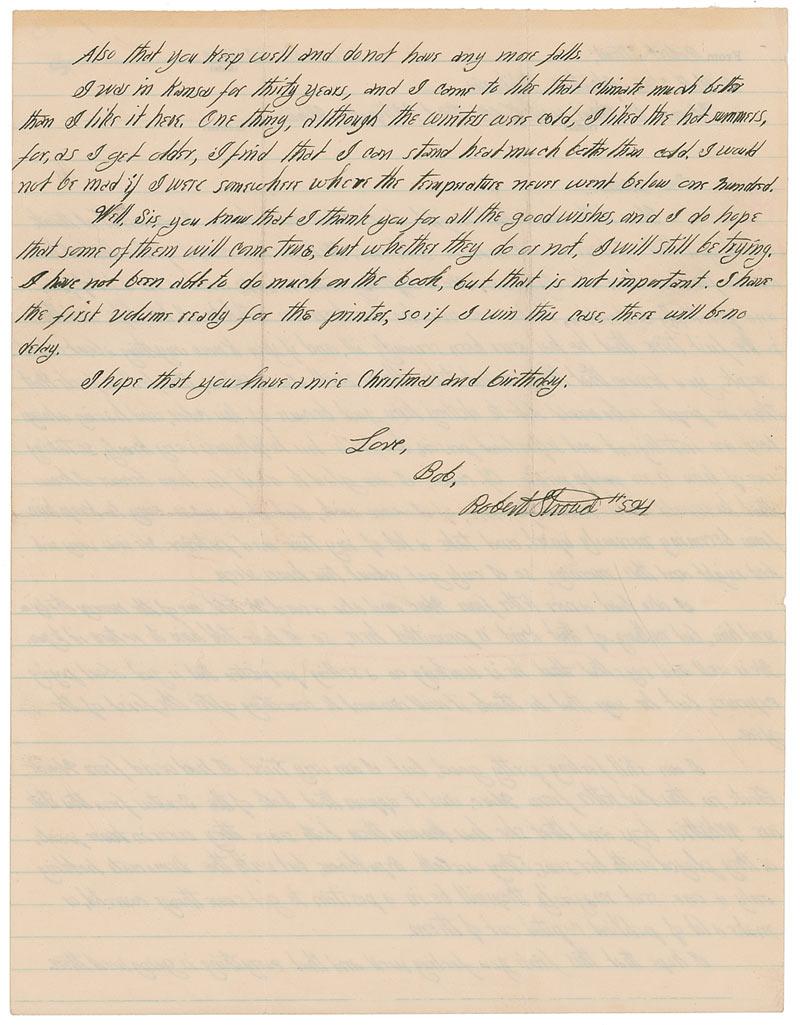 Also that you keep well and do not have any more falls.
I was in Kansas for thirty years, and I came to like that climate much better
than I like it here. One thing, although the winters were cold, I liked the hot summers,
for, as I get older, I find that I can stand heat much better than cold. I would
not be mad if I were somewhere where the temperature never went below one hundred.
Well, Sis, you know that I thank you for all the good wishes, and I do hope
that some of them will come true, but whether they do or not, I will still be trying.
I have not been able to do much on the book, but that is not important. I have
the first volume ready for the printer, so if I win this case, there will be no
delay.
I hope that you have a nice Christmas and birthday.
Love,
Bob,
Robert Stroud #594